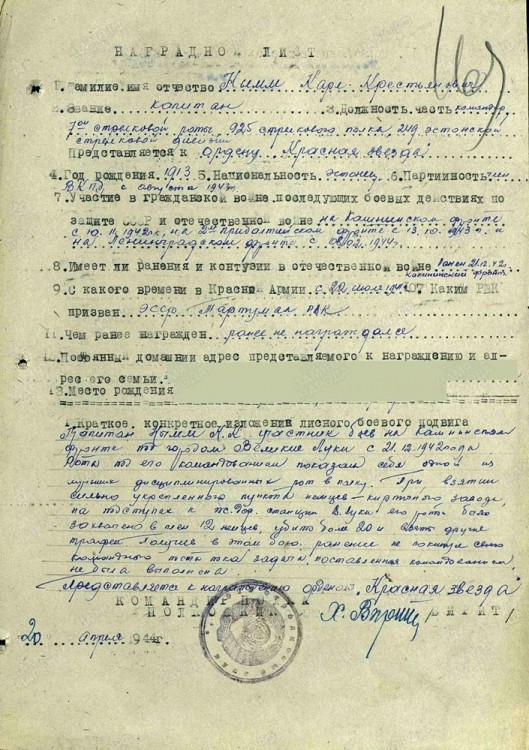 НАГРАДНОЙ ЛИСТ
1. Фамилие, имя отчество Нымм Карл Крестьянович
2. Звание капитан 3. Должность, часть командир
7ой стрелковой роты 925 стрелкового полка, 249 эстонской
стрелковой дивизии
Представляется к ордену "Красная звезда"
4. Год рождения 1913 5. Национальность эстонец 6. Партийность член
ВКП(б) с августа 1943г.
7. Участие в гражданской войне, последующих боевых действиях по
защите СССР и отечественной войне на Калининском фронте
с 10.11.1942г., на 2ом Прибалтийском фронте с 13.10.1943г. и
на Ленинградском фронте с 02.1944г.
8. Имеет ли ранения и контузии в отечественной войне Ранен 21.12.42г.
Калининский фронт
9. С какого времени в Красной Армии с 22 июля Каким РВК
призван. ЭССР Тартуман РВК
11. Чем ранее награжден. ранее не награждался
12. Постоянный домашний адрес представляемого к награждению и ад-
рес его семьи.
13. Место рождения
1. Краткое, конкретное изложение лисного боевого подвига
Капитан Нымм К.К. участник боев на Калининском
фронте под городом Великие Луки с 21.12.1942 года
Рота под его командованием показала себя одной из
лучших дисциплинированных рот в полку. При взятии
сильно укрепленного пункта немцев - кирпичного завода,
на подступах к ж.дор. станции В.Луки его рота было
захвачено в плен 12 немцев, убито боле 20 и взято другие
трофеи. Получив в этом бою ранение не покинул своего
командного поста пока задача, поставленная командованием,
не была выполнена.
Представляется к награждению орденом "Красная звезда"
КОМАНДИР ПОЛКА
ПОЛКОВНИК
20 апреля 1944г.